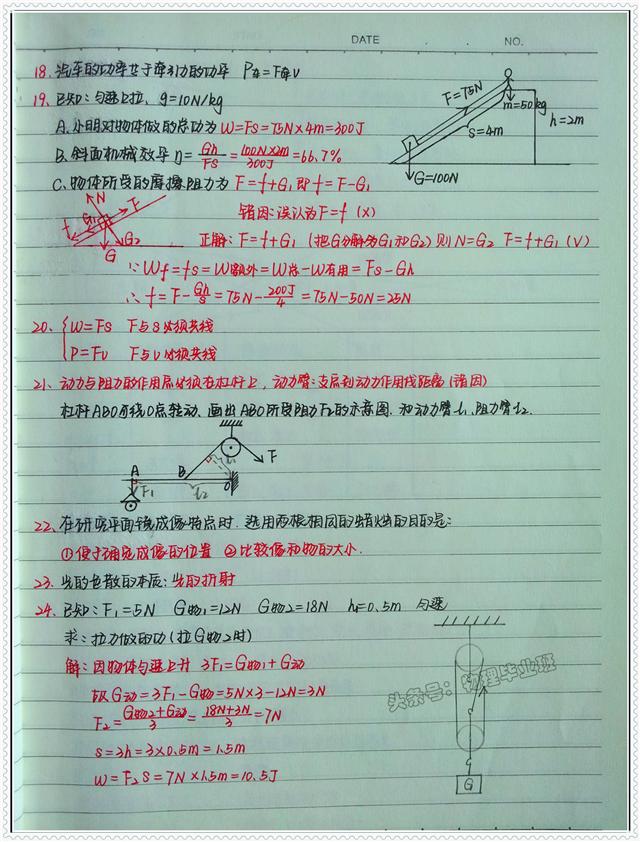 DATE NO.
18. 汽车的功率等于牵引力的功率 P车=F牵v
19. 已知:匀速上拉、g=10N/kg
A. 小明对物体做的总功为 W=Fs=75N×4m=300J
F=75N
m=50kg
s=4m
h=2m
G=100N
B. 斜面机械效率η=Gh/Fs=100N×2m/300J=66.7%
C. 物体所受的摩擦阻力为 F=f+G₁ 即 f=F-G₁
N F f G₁ G₂ G
错因:误认为F=f (X)
正解:F=f+G₁ (把G分解为G₁和G₂) 则 N=G₂ F=f+G₁ (V)
∵ Wf=fs=W额外=W总-W有用=Fs-Gh
∴ f=F-Gh/s=75N-200J/4=75N-50N=25N
20. { W=Fs F与s必须共线
P=Fv F与v必须共线
21. 动力与阻力的作用点必须在杠杆上,动力臂:支点到动力作用线距离(错因)
杠杆ABO可绕O点转动、画出ABO所受阻力F₂的示意图.和动力臂l₁、阻力臂l₂.
A B O F F₁ l₁ l₂
22. 在研究平面镜成像特点时.选用两根相同的蜡烛的目的是:
①便于确定成像的位置 ②比较像和物的大小.
23. 光的色散的本质:光的折射
24. 已知:F₁=5N G物1=12N G物2=18N h=0.5m 匀速
求:拉力做的功(拉G物2时)
解:因物体匀速上升 3F₁=G物1+G动
故G动=3F₁-G物=5N×3-12N=3N
F₂=G物2+G动/3=18N+3N/3=7N
s=3h=3×0.5m=1.5m
W=F₂s=7N×1.5m=10.5J
G
头条号:物理毕业班